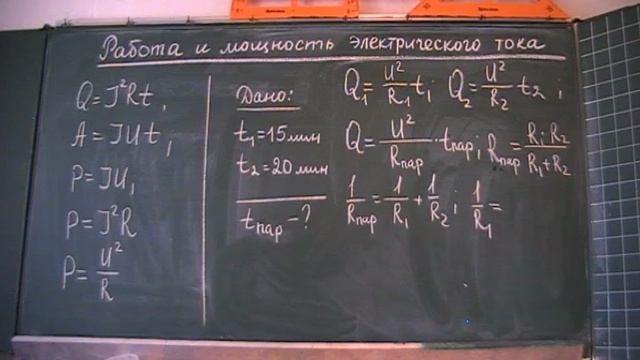 Работа и мощность электрического тока
Q=J²Rt,
A=JUt,
P=JU,
P=J²R
P=U²/R
Дано:
t₁=15мин
t₂=20мин
tпар-?
Q₁=U²/R₁ t; Q₂=U²/R₂·t₂;
Q=U²/Rпар·tпар; Rпар=R₁R₂/R₁+R₂
1/Rпар=1/R₁+1/R₂; 1/R₁=